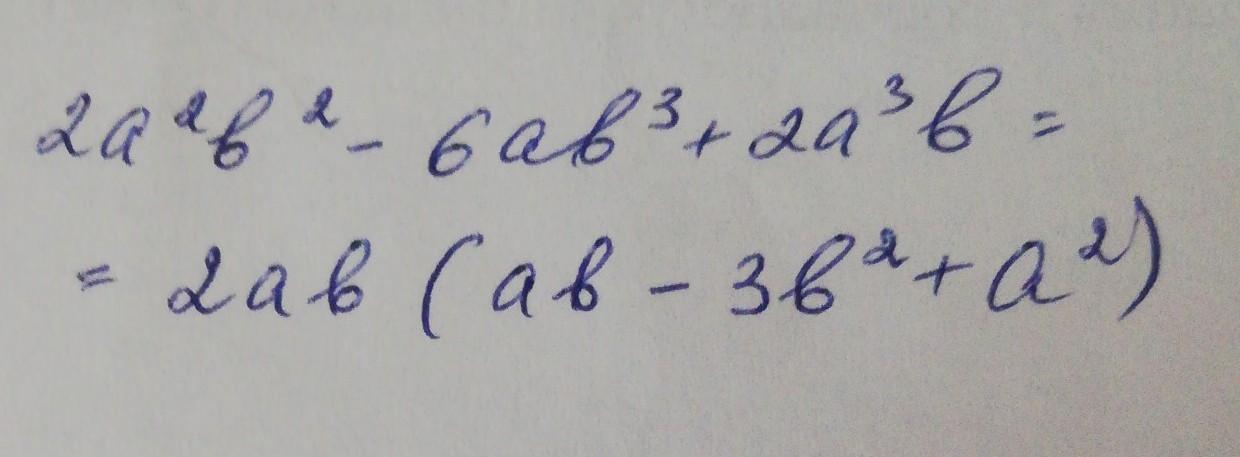 2a²b² - 6ab³ + 2a³b =
= 2ab (ab - 3b² + a²)